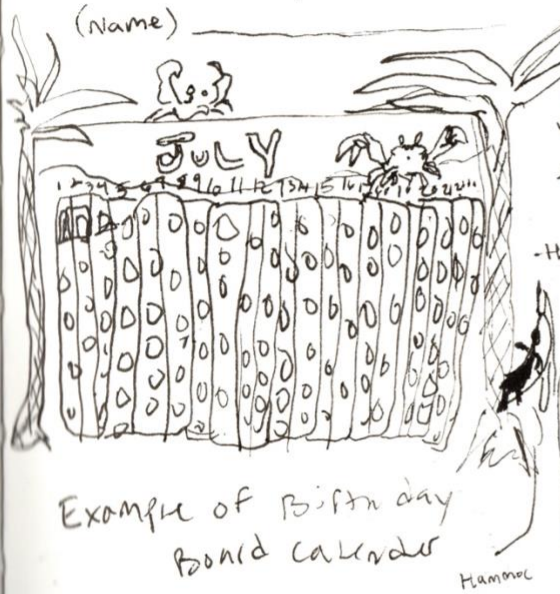 (Name)
JULY
1 2 3 4 5 6 7 8 9 10 11 12 13 14 15
-H
Example of Birthday
Board calender
Hammoc